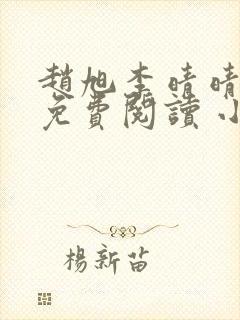 趙旭李晴晴
免費閱讀小
楊新苗